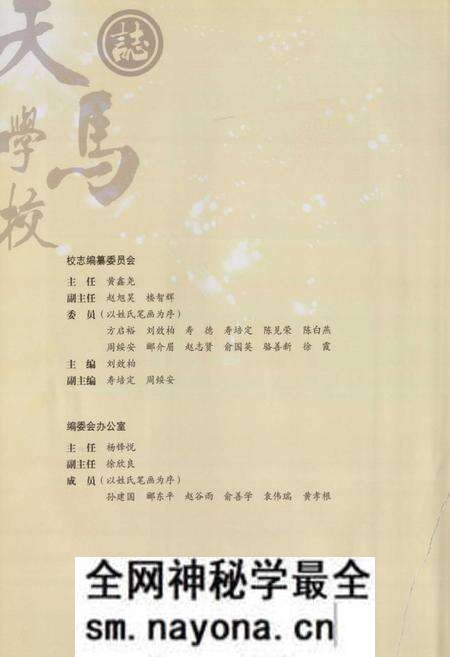 天馬
學校
誌
校志编纂委员会
主 任 黄鑫尧
副主任 赵旭昊 楼智辉
委 员(以姓氏笔画为序)
方启裕 刘效柏 寿 德 寿培定 陈见荣 陈白燕
周绥安 郦介眉 赵志贤 俞国英 骆善新 徐 霞
主 编 刘效柏
副主编 寿培定 周绥安
编委会办公室
主 任 杨锋悦
副主任 徐欣良
成 员(以姓氏笔画为序)
孙建国 郦东平 赵谷雨 俞善学 袁伟瑞 黄孝根
全网神秘学最全
sm.nayona.cn